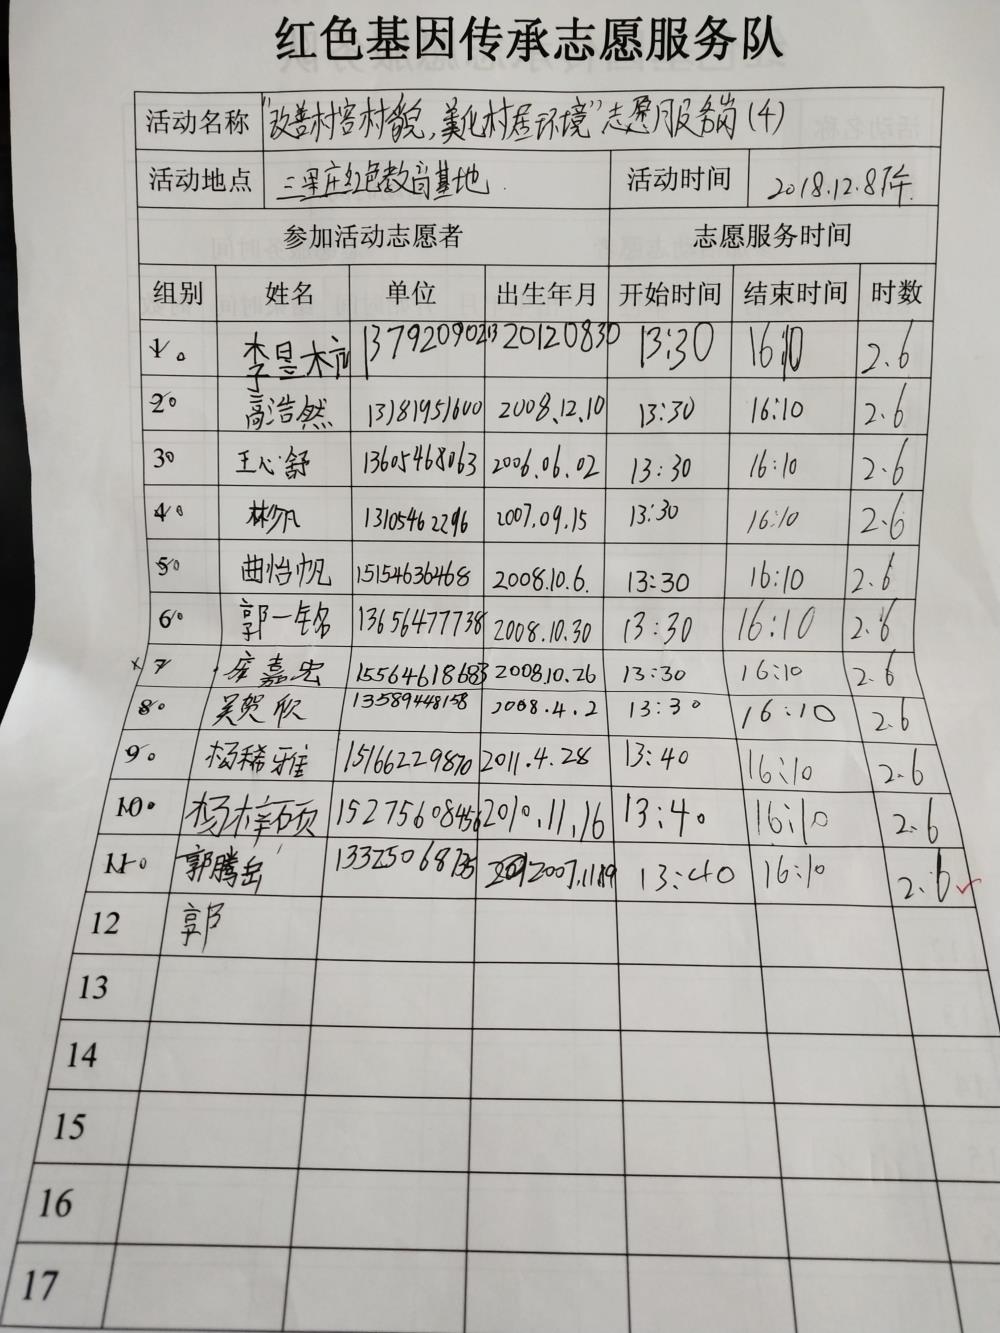 红色基因传承志愿服务队
活动名称 "改善村容村貌,美化村居环境"志愿服务岗(4)
活动地点 三里庄红色教育基地. 活动时间 2018.12.8下午.
参加活动志愿者 志愿服务时间
组别 姓名 单位 出生年月 开始时间 结束时间 时数
1 李昱 13792090213 20120830 13:30 16:10 2.6
2 高浩然 13181951600 2008.12.10 13:30 16:10 2.6
3 王心舒 13605468063 2006.06.02 13:30 16:10 2.6
4 林 13105462296 2007.09.15 13:30 16:10 2.6
5 曲怡帆 15154636468 2008.10.6. 13:30 16:10 2.6
6 郭一铭 13656477738 2008.10.30 13:30 16:10 2.6
× 7 嘉忠 15564618683 2008.10.26 13:30 16:10 2.6
8 吴贺欣 13589448158 2008.4.2 13:30 16:10 2.6
9 杨稀雅 15166229870 2011.4.28 13:40 16:10 2.6
10 杨梓硕 15275608456 2010.11.16 13:40 16:10 2.6
11 郭腾岳 13325068735 2007.11.19 13:40 16:10 2.6 ✓
12 郭
13
14
15
16
17